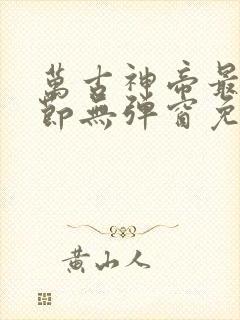 萬古神帝最
節無彈窗免
黃山人